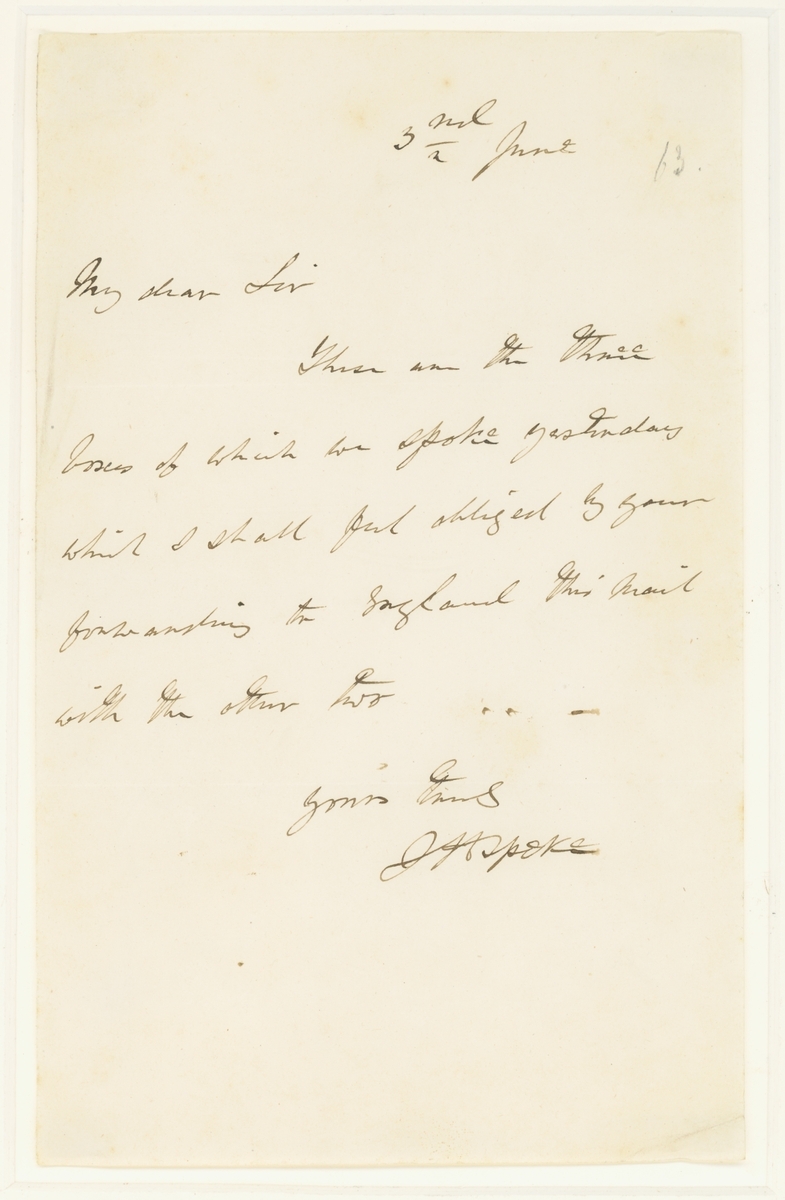 3 nd June 63.
My dear Sir
These are the three
boxes of which we spoke yesterday
which I shall feel obliged by your
forwarding to England this Mail
with the other two
yours truly
J H Speke